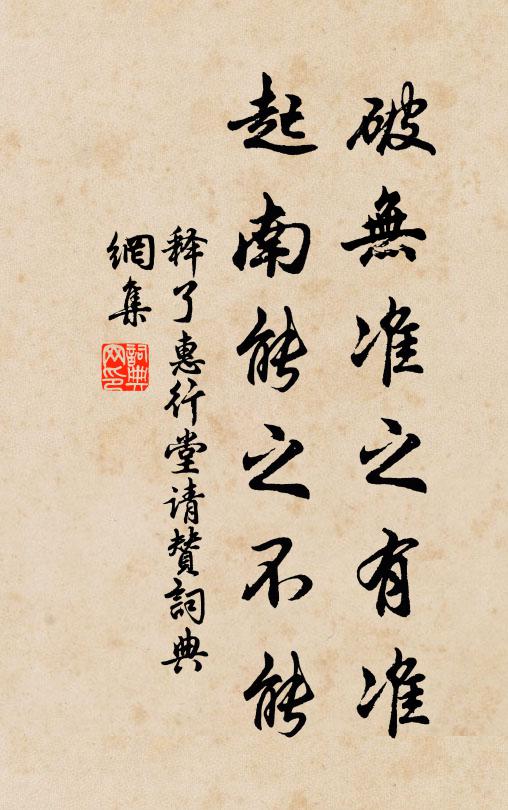 破無准之有准
起南能之不能
释了惠行堂请贊詞典
網集
詞典
网印